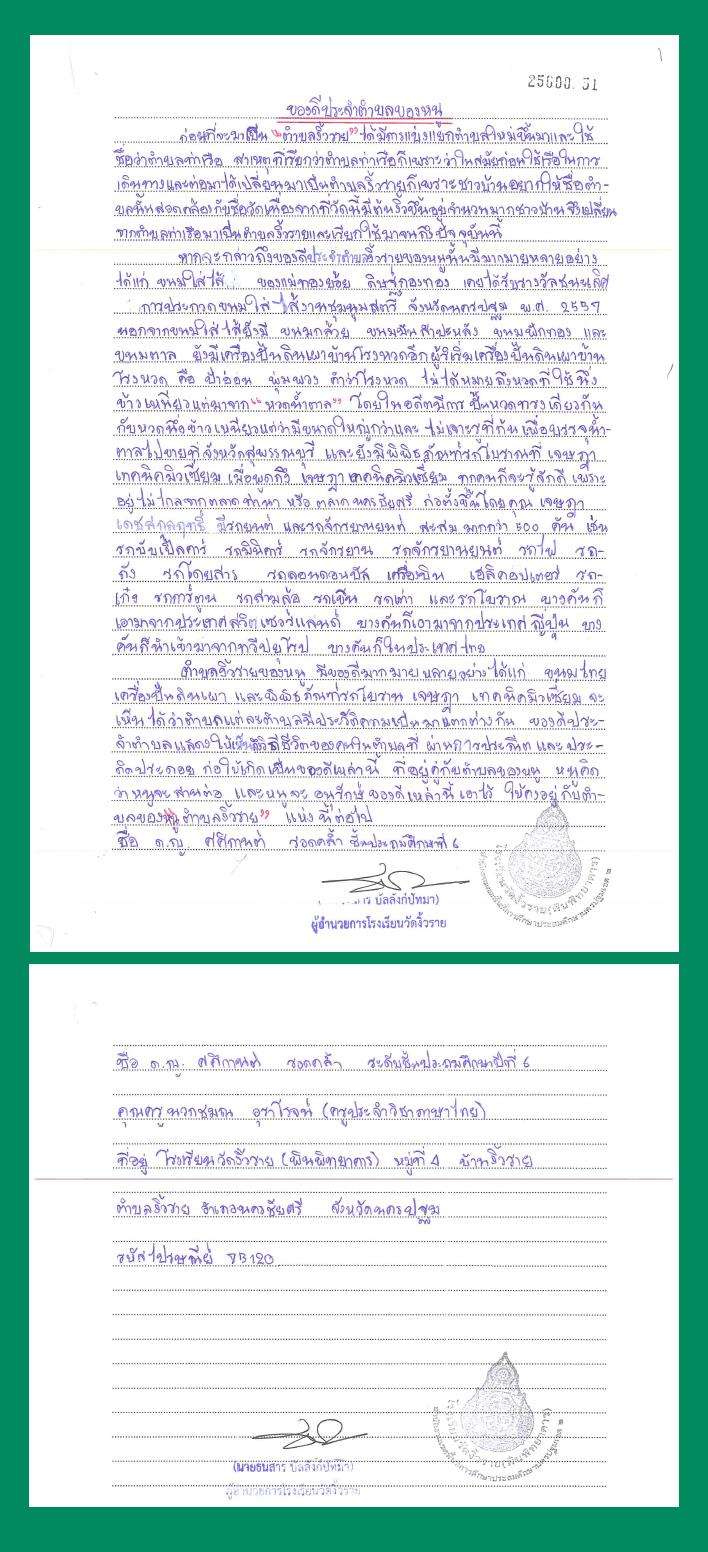 25600. 51
ของดีประจำตำบลของหนู
ก่อนที่จะมาเป็น "ตำบลงิ้วราย" ได้มีการแบ่งแยกตำบลใหม่ขึ้นมาและใช้
ชื่อว่าตำบลท่าเรือ สาเหตุที่เรียกว่าตำบลท่าเรือก็เพราะว่าในสมัยก่อนใช้เรือในการ
เดินทางและต่อมาได้เปลี่ยนมาเป็นตำบลงิ้วรายก็เพราะชาวบ้านอยากให้ชื่อตำ-
บลนั้นสอดคล้องกับชื่อวัดเนื่องจากที่วัดนี้มีต้นงิ้วขึ้นอยู่จำนวนมากชาวบ้าน จึงเปลี่ยน
จากตำบลท่าเรือมาเป็นตำบลงิ้วรายและเรียกใช้มาจนถึงปัจจุบันนี้
หากจะกล่าวถึงของดีประจำตำบลงิ้วรายของหนูนั้นมีมากมายหลายอย่าง
ได้แก่ ขนมใส่ไส้ ของแม่ทองย้อย ดิษฐ์กองทอง เคยได้รับรางวัลชนะเลิศ
การประกวดขนมใส่ไส้งานชุมนุมสตรี จังหวัดนครปฐม พ.ศ. 2537
นอกจากขนมใส่ไส้ยังมี ขนมกล้วย ขนมมันสำปะหลัง ขนมฟักทอง และ
ขนมตาล ยังมีเครื่องปั้นดินเผาบ้านโรงหวดอีก ผู้ริเริ่มเครื่องปั้นดินเผาบ้าน
โรงหวด คือ ป้าอ่อน พุ่มพวง คำว่าโรงหวด ไม่ได้หมายถึงหวดที่ใช้นึ่ง
ข้าวเหนียวแต่มาจาก "หวดน้ำตาล" โดยในอดีตมีการ ปั้นหวดทรงเดียวกัน
กับหวดนึ่งข้าวเหนียวแต่ว่ามีขนาดใหญ่กว่าและ ไม่เจาะรูที่ก้น เพื่อบรรจุน้ำ-
ตาลไปขายที่จังหวัดสุพรรณบุรี และยังมีพิพิธภัณฑ์รถโบราณที่ เจษฎา
เทคนิคมิวเซียม เมื่อพูดถึง เจษฎาเทคนิคมิวเซียม ทุกคนก็จะรู้จักดี เพราะ
อยู่ไม่ไกลจากตลาดท่านา หรือ ตลาดนครชัยศรี ก่อตั้งขึ้นโดยคุณ เจษฎา
เดชสกุลฤทธิ์ มีรถยนต์ และรถจักรยานยนต์ สะสม มากกว่า 500 คัน เช่น
รถขับเปิ้ลคาร์ รถมินิคาร์ รถจักรยาน รถจักรยานยนต์ รถไฟ รถ-
ถัง รถโดยสาร รถลอนดอนบัส เครื่องบิน เฮลิคอปเตอร์ รถ-
เก๋ง รถการ์ตูน รถสามล้อ รถเข็น รถเต่า และรถโบราณ บางคันก็
เอามาจากประเทศสวิตเซอร์แลนด์ บางคันก็เอามาจากประเทศญี่ปุ่น บาง
คันก็นำเข้ามาจากทวีปยุโรป บางคันก็ในประเทศไทย
ตำบลงิ้วรายของหนู มีของดีมากมายหลายอย่างได้แก่ ขนมไทย
เครื่องปั้นดินเผา และพิพิธภัณฑ์รถโบราน เจษฎา เทคนิคมิวเซียม จะ
เห็นได้ว่าตำบลแต่ละตำบลมีประวัติความเป็นมาแตกต่างกัน ของดีประ-
จำตำบลแสดงให้เห็นถึงวิถีชีวิตของคนในตำบลที่ ผ่านการประณีต และประ-
ดิดประดอย ก่อให้เกิดเป็นของดีเหล่านี้ ที่อยู่คู่กับตำบลของหนู หนูคิด
ว่า หนูจะสานต่อ และหนูจะ อนุรักษ์ ของดีเหล่านี้ เอาไว้ ให้คงอยู่กับตำ-
บลของหนู "ตำบลงิ้วราย" แห่งนี้ต่อไป
ชื่อ ด.ญ ศศิกานต์ รอดคล้ำ ชั้นประถมศึกษาปีที่ 6
บัลลังก์ปัทมา)
ผู้อำนวยการโรงเรียนวัดงิ้วราย
ชื่อ ด.ญ. ศศิกานต์ รอดคล้ำ ระดับชั้นประถมศึกษาปีที่ 6
คุณครู นวกชมณ อุราโรจน์ (ครูประจำวิชาภาษาไทย)
ที่อยู่ โรงเรียนวัดงิ้วราย (พินพิทยาคาร) หมู่ที่ 4 บ้านงิ้วราย
ตำบลงิ้วราย อำเภอนครชัยศรี จังหวัดนครปฐม
รหัสไปรษณีย์ 73120
(นายธนสาร บัลลังก์ปัทมา)
ผู้อำนวยการโรงเรียนวัดงิ้วราย